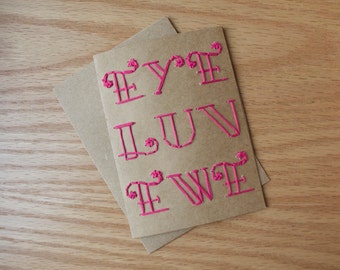 EYE
LUV
EWE